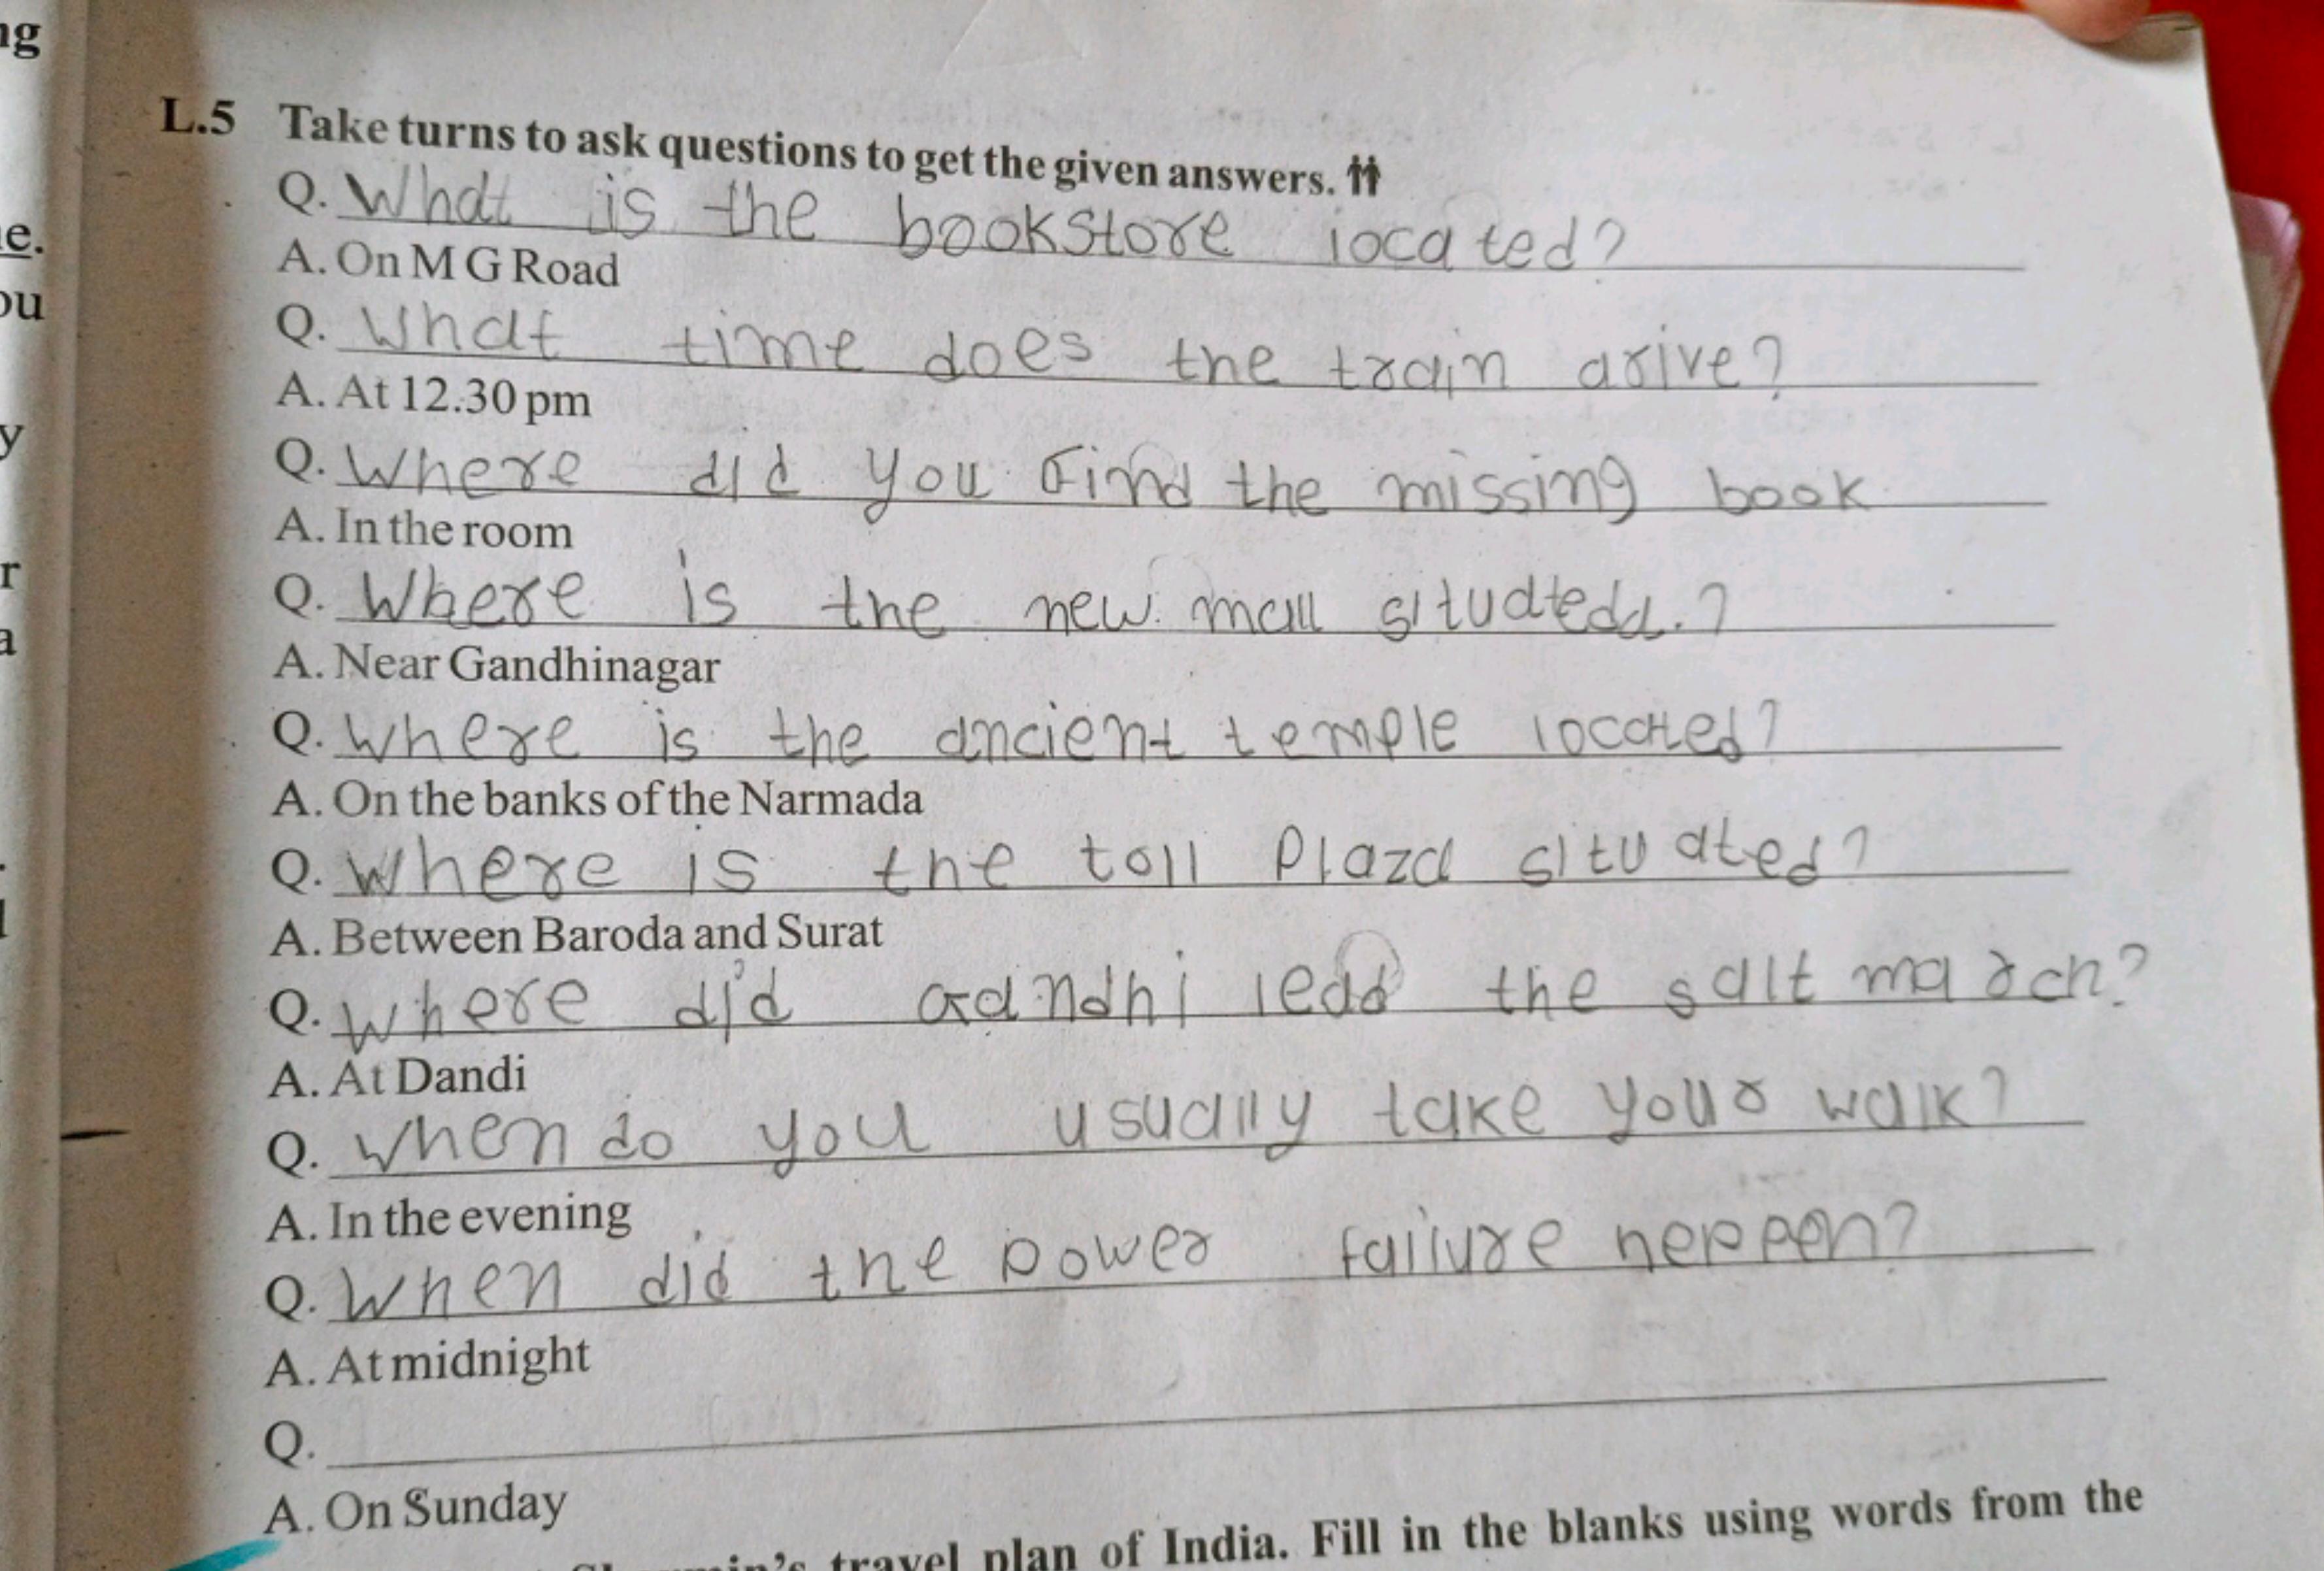 ng
e.
ou
y
r
a
L.5 Take turns to ask questions to get the given answers.
Q. What is the bookstore located?
A. On M G Road
Q. What time does the train arive?
A. At 12.30 pm
Q. Where did you find the missing book
A. In the room
Q. Where is the new mall situatedd.?
A. Near Gandhinagar
Q. Where is the ancient temple located?
A. On the banks of the Narmada
Q. Where is the toll Plaza situated?
A. Between Baroda and Surat
Q. Where did Gandhi lead the salt march?
A. At Dandi
Q. When do you usually take your walk?
A. In the evening
Q. When did the power failure heppen?
A. At midnight
Q.
A. On Sunday
travel plan of India. Fill in the blanks using words from the